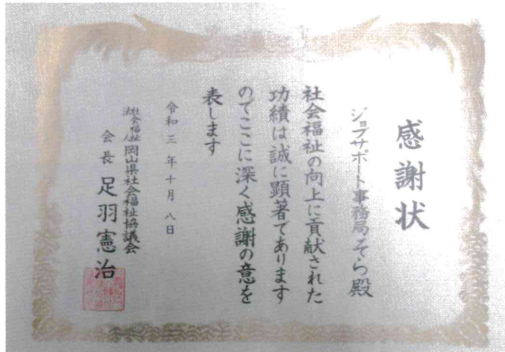 感謝状
ジョブサポート事務局そら殿
社会福祉の向上に貢献された
功績は誠に顕著であります
のでここに深く感謝の意を
表します
令和三年十月八日
社会福祉法人岡山県社会福祉協議会
会長足羽憲治